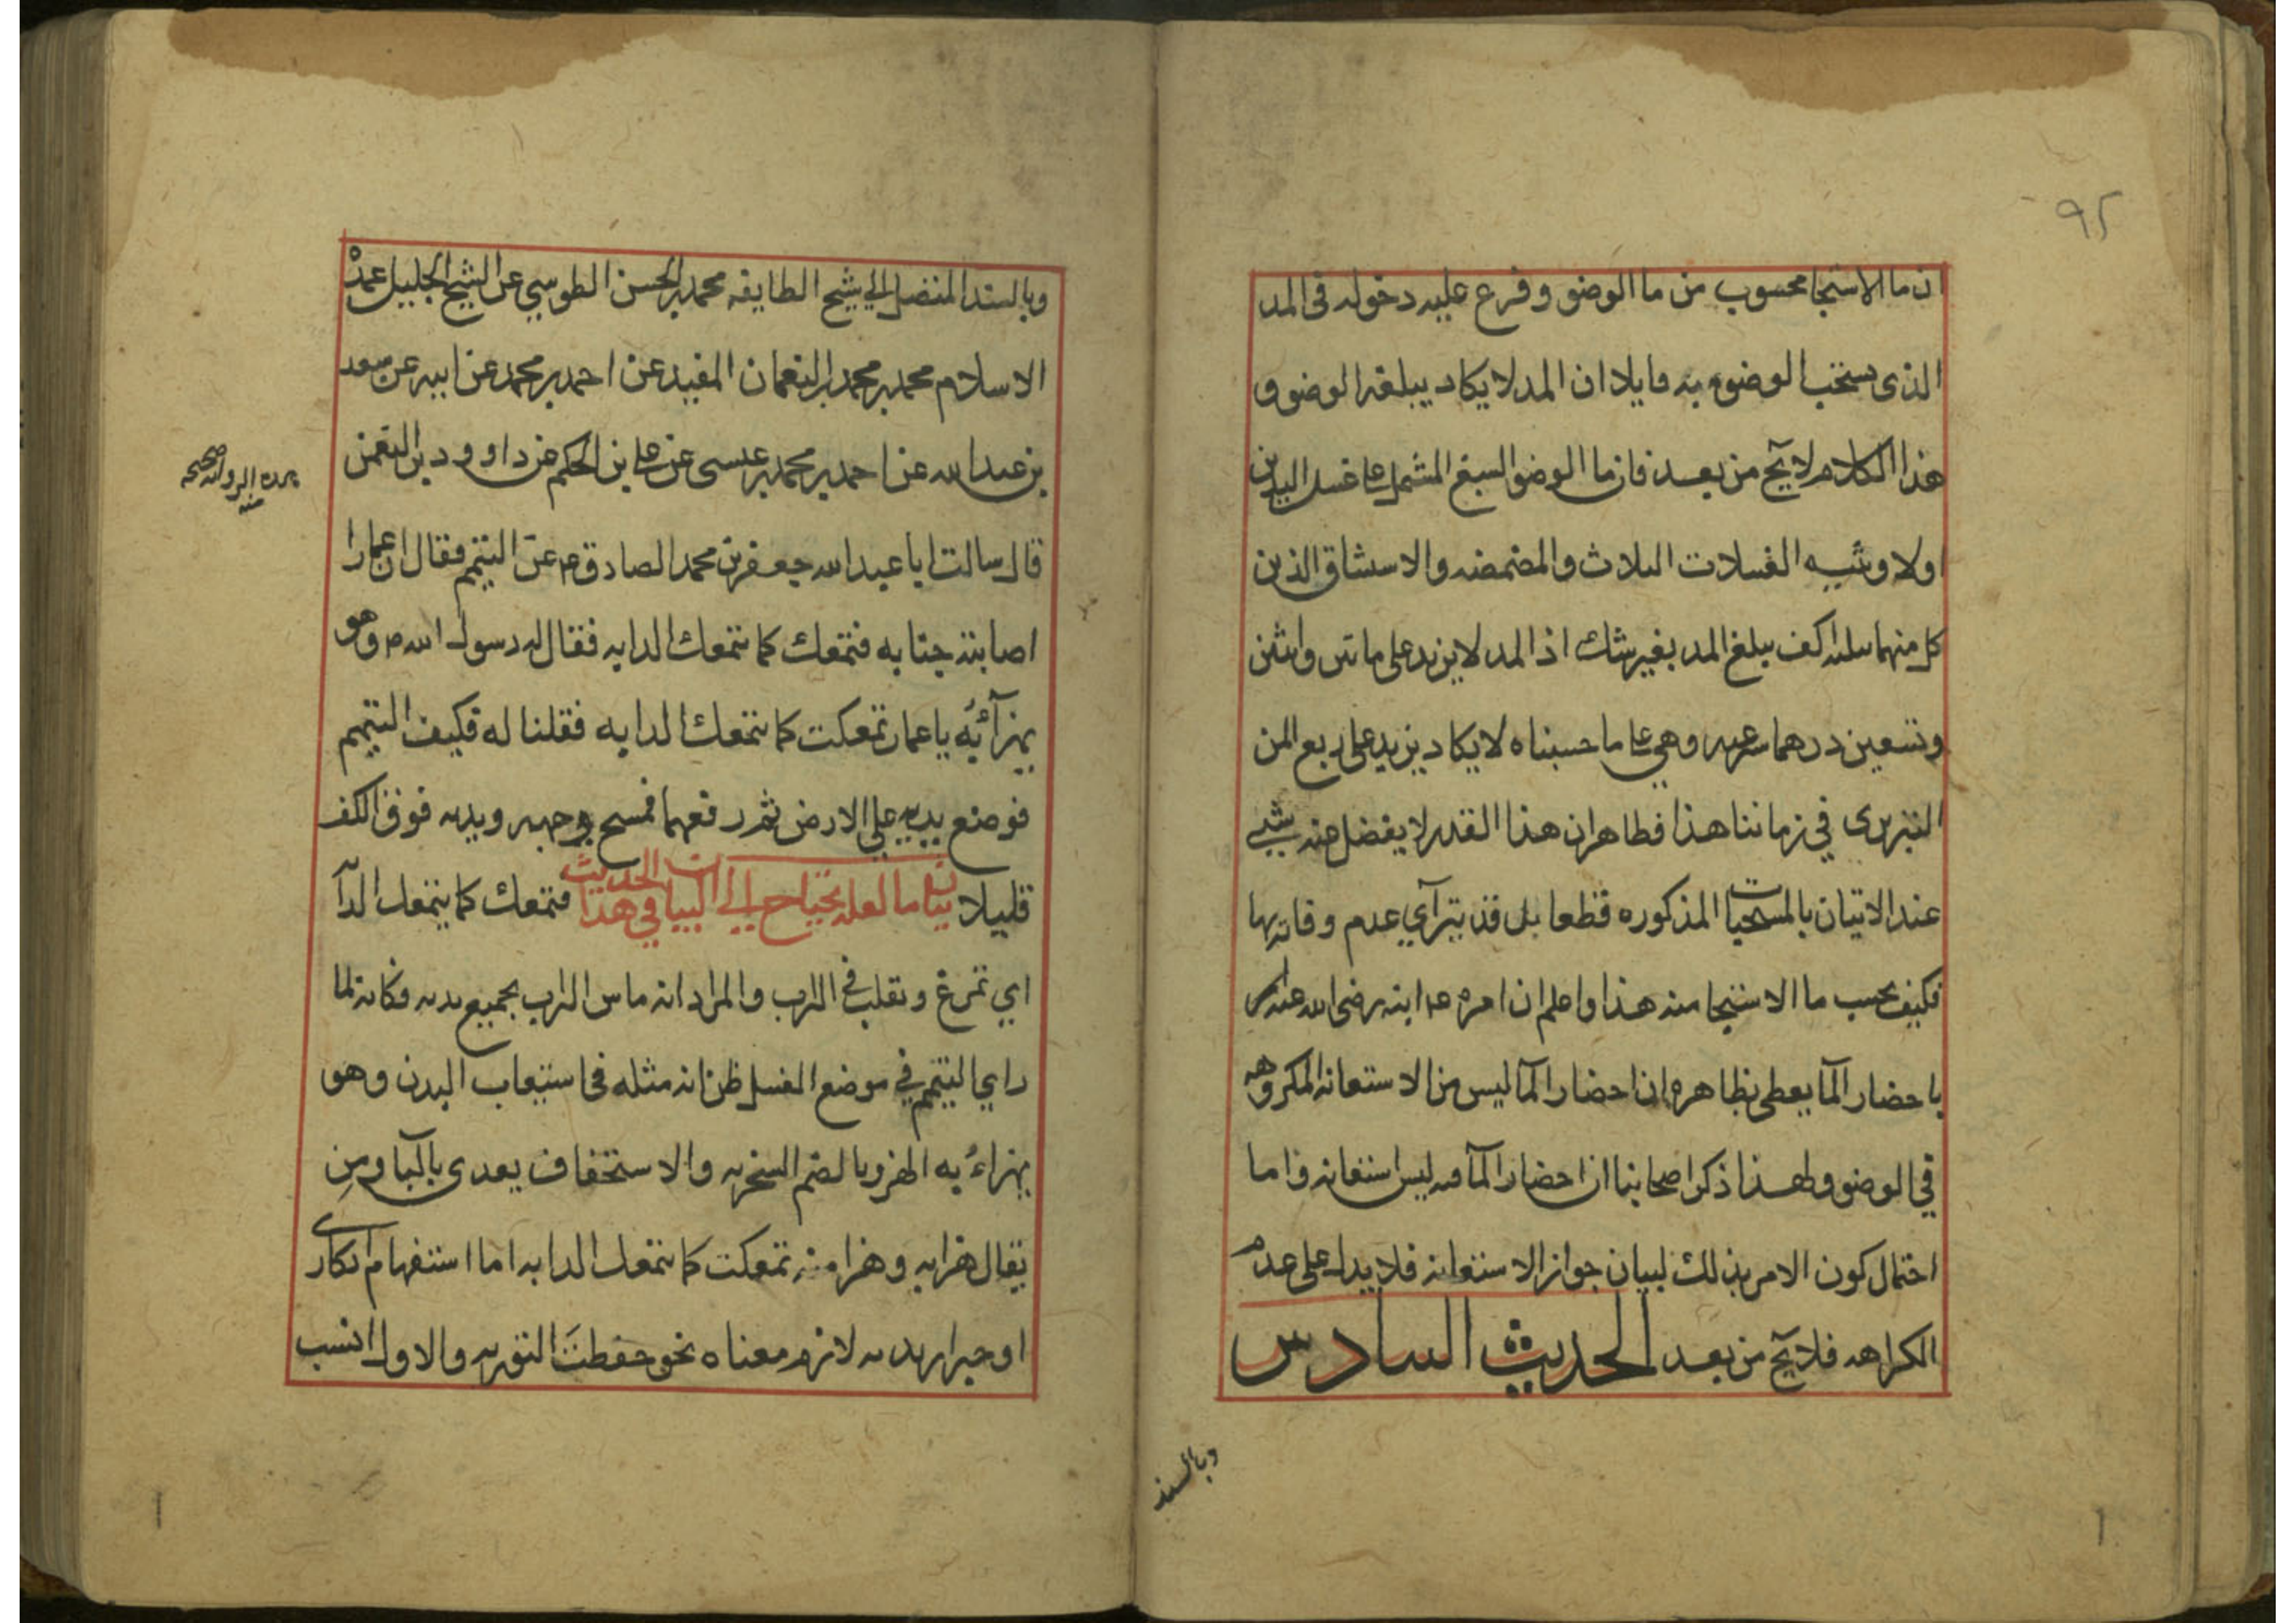 ٩٢
ان ما الاستنجا محسوب من ما الوضو وفرع عليه دخوله فى المد
الذى يستحب الوضوء به قايلا ان المد لا يكاد يبلغه الوضو و
هذا الكلام لا يخ من بعد فان ما الوضو السبغ المشتمل على غسل اليدين
اولا وتثنيه الغسلات الثلاث والمضمضه والاستنشاق الذين
كل منهما بثلثه اكف يبلغ المد بغير شك اذ المد لا يزيد على ماتين واثنين
وتسعين درهما شرعيه وهي على ما حسبناه لا يكاد يزيد على ربع المن
التبريزى في زماننا هذا فظاهر ان هذا القدر لا يفضل عنه شيء
عند الاتيان بالمستحبات المذكوره قطعا بل قد يترآي عدم وفائه بها
فكيف يحسب ما الاستنجا منه هذا واعلم ان امره ع ابنه رضى الله عنه
باحضار المآ يعطى بظاهره ان احضار المآ ليس من الاستعانه المكروهه
في الوضو ولهذا ذكر اصحابنا ان احضار المآ فيه ليس استعانه واما
احتمال كون الامر بذلك لبيان جواز الاستعانه فلا يدل على عدم
الكراهه فلا يخ من بعد الحديث السادس
وبالسند
وبالسند المتصل الي شيخ الطايفه محمد بن الحسن الطوسي عن الشيخ الجليل عمدة
الاسلام محمد بن محمد بن النعمان المفيد عن احمد بن محمد عن ابيه عن سعد
بن عبد الله عن احمد بن محمد بن عيسى عن على بن الحكم عن داوود بن النعمن
هذه الرواية صحيحه
منه
قال سالت ابا عبد الله جعفر بن محمد الصادق ع عن التيمم فقال ان عمارا
اصابته جنابه فتمعك كما تتمعك الدابه فقال له رسول الله ص وهو
يهزآئبه يا عمار تمعكت كما تتمعك الدابه فقلنا له فكيف التيمم
فوضع يديه على الارض ثم رفعهما فمسح وجهه ويديه فوق الكف
قليلا بيان ما لعله يحتاج الى البيان في هذا الحديث فتمعك كما يتمعك الدآ
اي تمرغ وتقلب في التراب والمراد انه ماس التراب بجميع بدنه وكانه لما
راي التيمم في موضع الغسل ظن انه مثله فى استيعاب البدن وهو
يهزاء به الهزو بالضم السخريه والاستخفاف يعدى بالبآ ومن
يقال هزا به وهزا منه تمعكت كما تتمعك الدابه اما استفهام انكارى
او خبر اريد به لازم معناه نحو حفظت التوريه والاول انسب